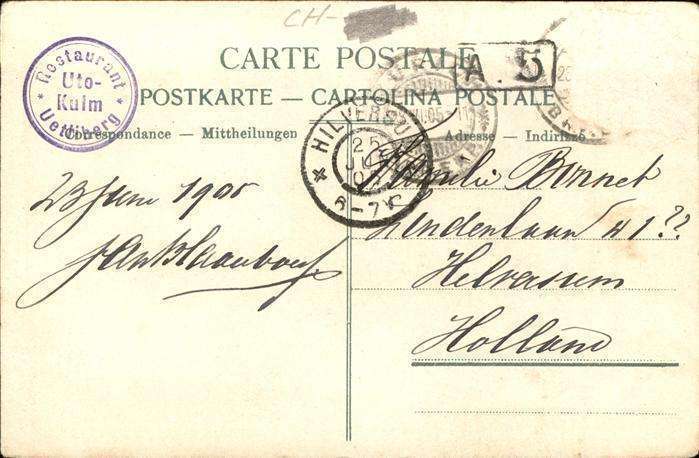 CH-
CARTE POSTALE
POSTKARTE — CARTOLINA POSTALE
Correspondance — Mittheilungen
Adresse — Indirizzo
Restaurant
Uto-
Kulm
Uetliberg
A. 5
HILVERSU
25
6-7
23 Juni 1905
Bonnet
Lindenlaan 41??
Helversum
Holland